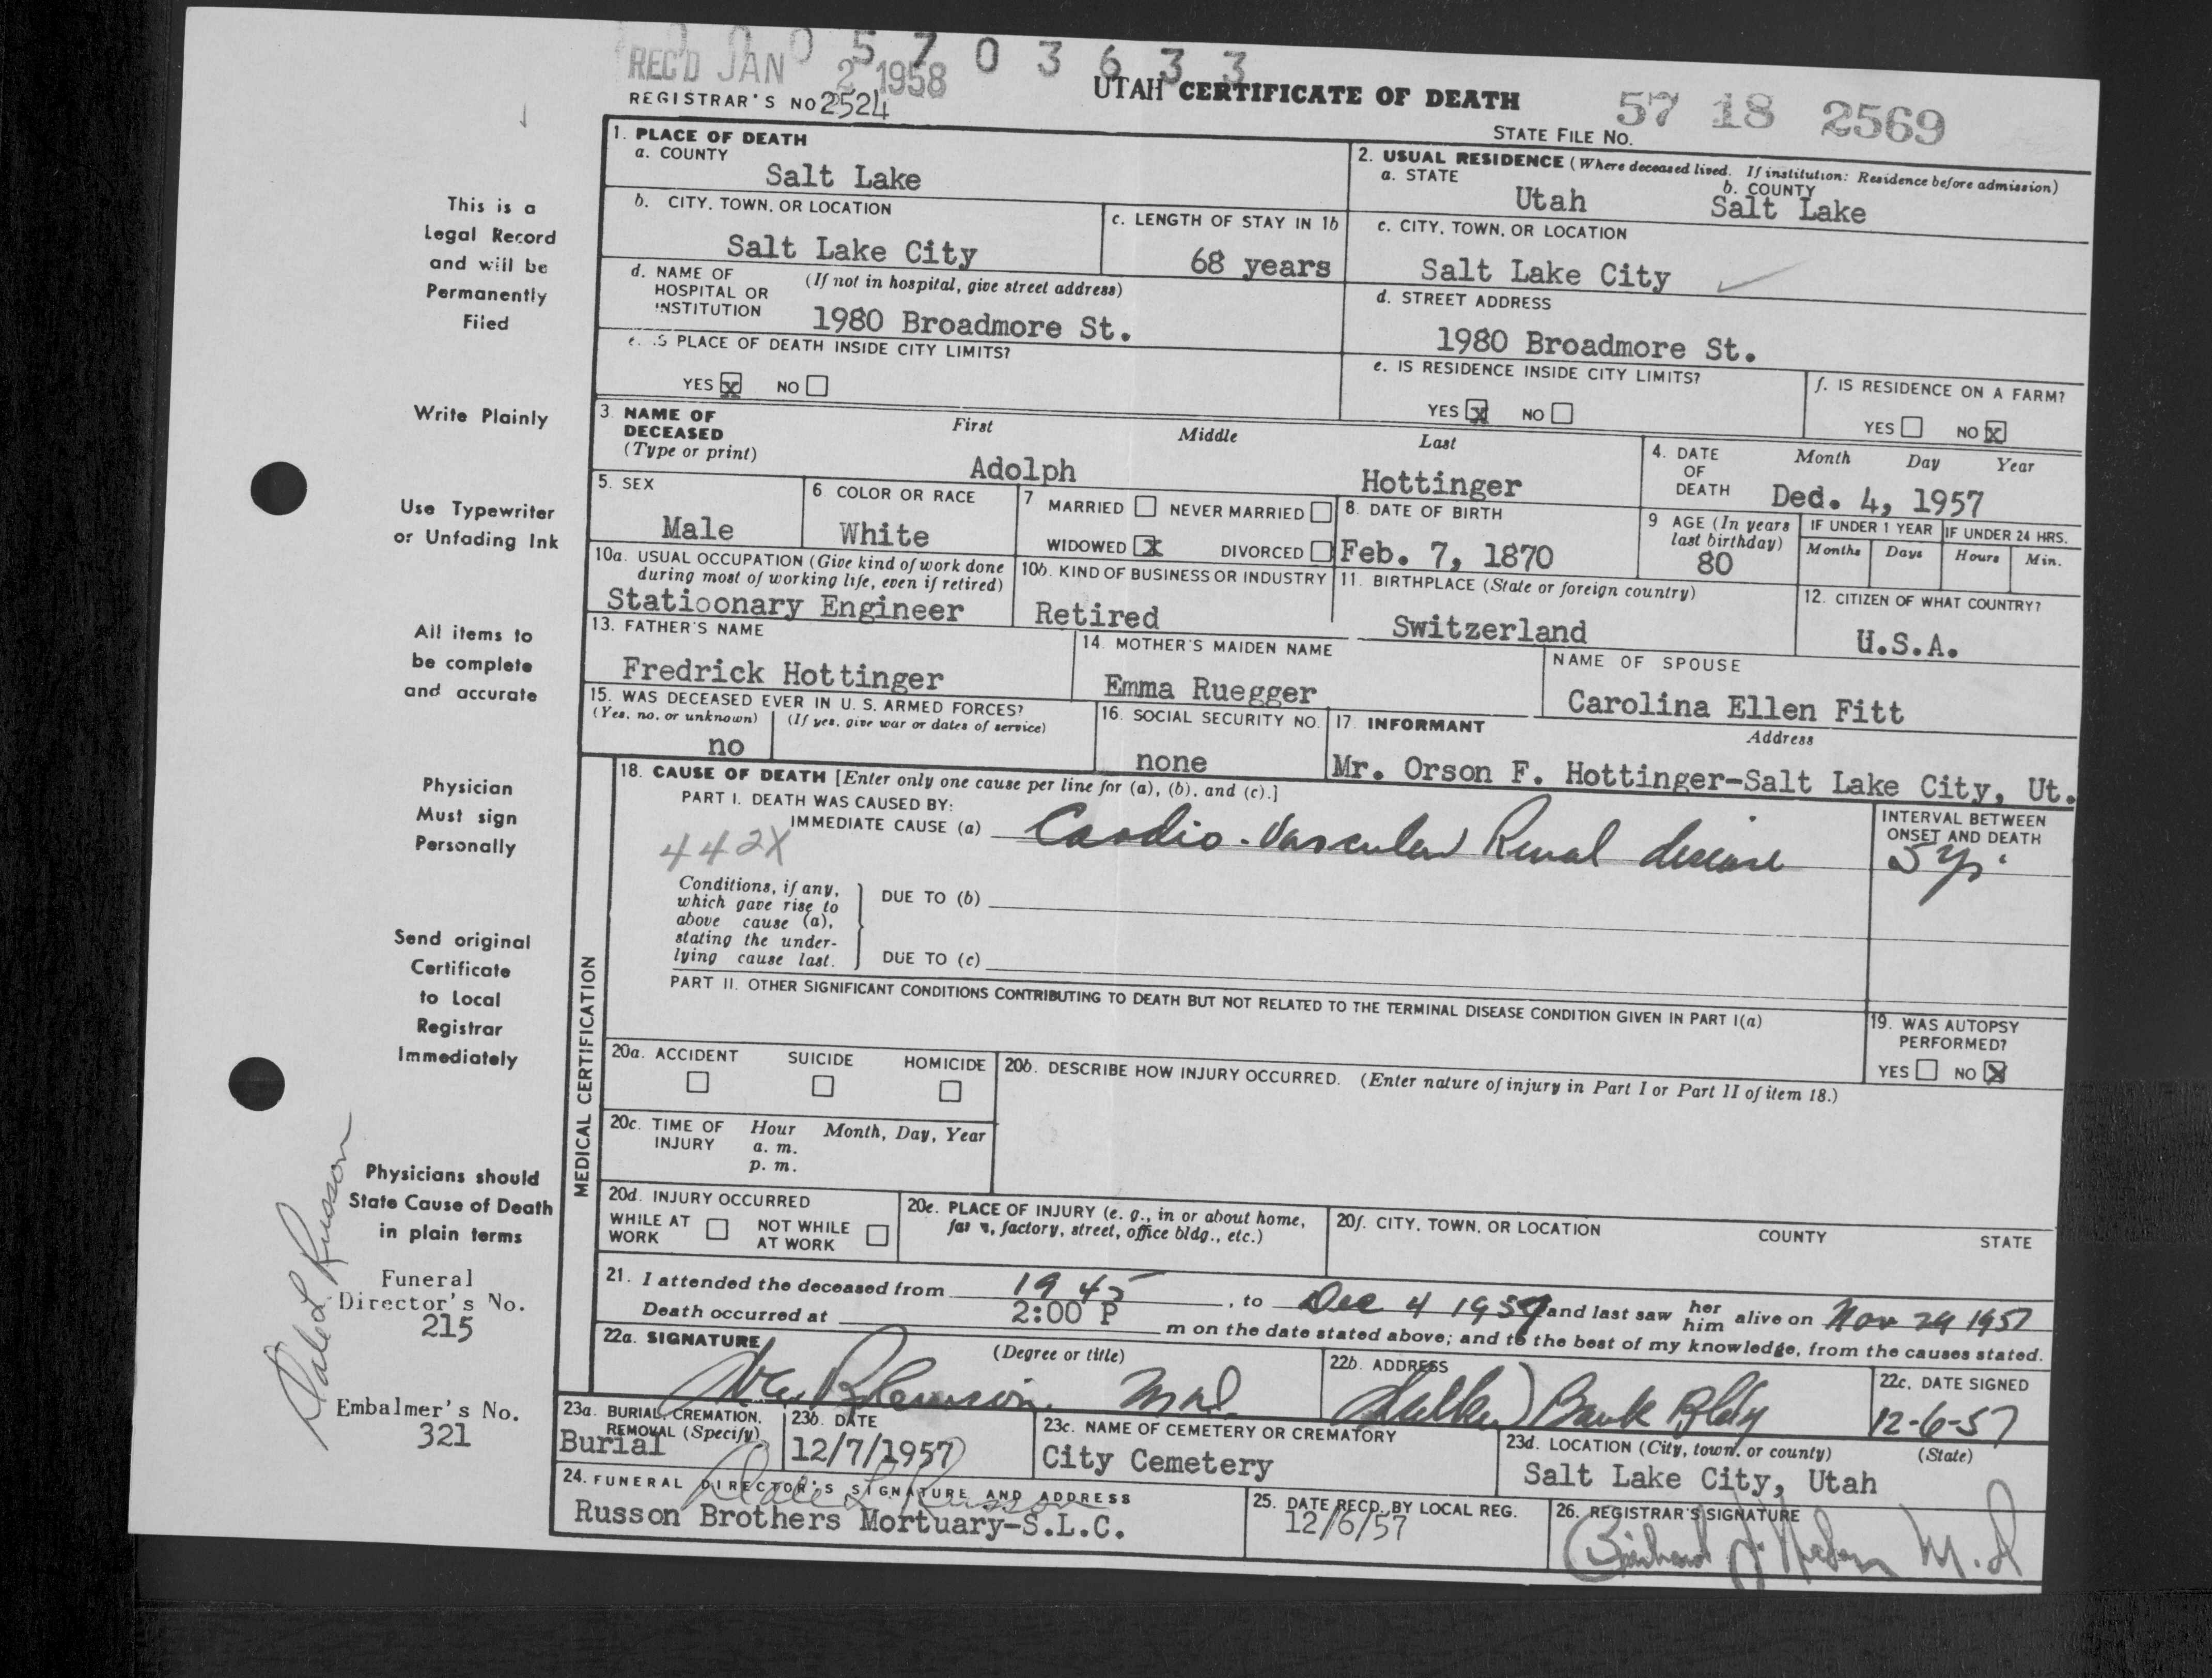 0 0 0 5 7 0 3 6 3 3
REC'D JAN 2 1958
UTAH CERTIFICATE OF DEATH
REGISTRAR'S NO 2524
STATE FILE NO. 57 18 2569
This is a
Legal Record
and will be
Permanently
Filed
Write Plainly
Use Typewriter
or Unfading Ink
All items to
be complete
and accurate
Physician
Must sign
Personally
Send original
Certificate
to Local
Registrar
Immediately
Physicians should
State Cause of Death
in plain terms
Funeral
Director's No.
215
Embalmer's No.
321
Dale L Russon
1. PLACE OF DEATH
a. COUNTY
Salt Lake
2. USUAL RESIDENCE (Where deceased lived. If institution: Residence before admission)
a. STATE
Utah
b. COUNTY
Salt Lake
b. CITY, TOWN, OR LOCATION
Salt Lake City
c. LENGTH OF STAY IN 1b
68 years
c. CITY, TOWN, OR LOCATION
Salt Lake City
d. NAME OF HOSPITAL OR INSTITUTION
(If not in hospital, give street address)
1980 Broadmore St.
d. STREET ADDRESS
1980 Broadmore St.
e. IS PLACE OF DEATH INSIDE CITY LIMITS?
YES x NO
e. IS RESIDENCE INSIDE CITY LIMITS?
YES x NO
f. IS RESIDENCE ON A FARM?
YES NO x
3. NAME OF DECEASED
(Type or print)
First Middle Last
Adolph Hottinger
4. DATE OF DEATH
Month Day Year
Ded. 4, 1957
5. SEX
Male
6 COLOR OR RACE
White
7 MARRIED NEVER MARRIED
WIDOWED x DIVORCED
8. DATE OF BIRTH
Feb. 7, 1870
9 AGE (In years last birthday)
80
IF UNDER 1 YEAR IF UNDER 24 HRS.
Months Days Hours Min.
10a. USUAL OCCUPATION (Give kind of work done during most of working life, even if retired)
Statioonary Engineer
10b. KIND OF BUSINESS OR INDUSTRY
Retired
11. BIRTHPLACE (State or foreign country)
Switzerland
12. CITIZEN OF WHAT COUNTRY?
U.S.A.
13. FATHER'S NAME
Fredrick Hottinger
14. MOTHER'S MAIDEN NAME
Emma Ruegger
NAME OF SPOUSE
Carolina Ellen Fitt
15. WAS DECEASED EVER IN U. S. ARMED FORCES?
(Yes, no, or unknown) (If yes, give war or dates of service)
no
16. SOCIAL SECURITY NO.
none
17. INFORMANT Address
Mr. Orson F. Hottinger-Salt Lake City, Ut.
MEDICAL CERTIFICATION
18. CAUSE OF DEATH [Enter only one cause per line for (a), (b), and (c).]
PART I. DEATH WAS CAUSED BY:
IMMEDIATE CAUSE (a) Cardio-Vascular Renal disease
442X
INTERVAL BETWEEN ONSET AND DEATH
5 yr.
Conditions, if any,
which gave rise to
above cause (a),
stating the under-
lying cause last.
DUE TO (b)
DUE TO (c)
PART II. OTHER SIGNIFICANT CONDITIONS CONTRIBUTING TO DEATH BUT NOT RELATED TO THE TERMINAL DISEASE CONDITION GIVEN IN PART I(a)
19. WAS AUTOPSY PERFORMED?
YES NO x
20a. ACCIDENT SUICIDE HOMICIDE
20b. DESCRIBE HOW INJURY OCCURRED. (Enter nature of injury in Part I or Part II of item 18.)
20c. TIME OF INJURY
Hour Month, Day, Year
a. m.
p. m.
20d. INJURY OCCURRED
WHILE AT WORK
NOT WHILE AT WORK
20e. PLACE OF INJURY (e. g., in or about home, farm, factory, street, office bldg., etc.)
20f. CITY, TOWN, OR LOCATION COUNTY STATE
21. I attended the deceased from 1945, to Dec 4 1957 and last saw her him alive on Nov 29 1957
Death occurred at 2:00 P m on the date stated above; and to the best of my knowledge, from the causes stated.
22a. SIGNATURE (Degree or title)
M.D.
22b. ADDRESS
Bank Bldg
22c. DATE SIGNED
12-6-57
23a. BURIAL, CREMATION, REMOVAL (Specify)
Burial
23b. DATE
12/7/1957
23c. NAME OF CEMETERY OR CREMATORY
City Cemetery
23d. LOCATION (City, town, or county) (State)
Salt Lake City, Utah
24. FUNERAL DIRECTOR'S SIGNATURE AND ADDRESS
Dale L Russon
Russon Brothers Mortuary-S.L.C.
25. DATE RECD. BY LOCAL REG.
12/6/57
26. REGISTRAR'S SIGNATURE
M.D